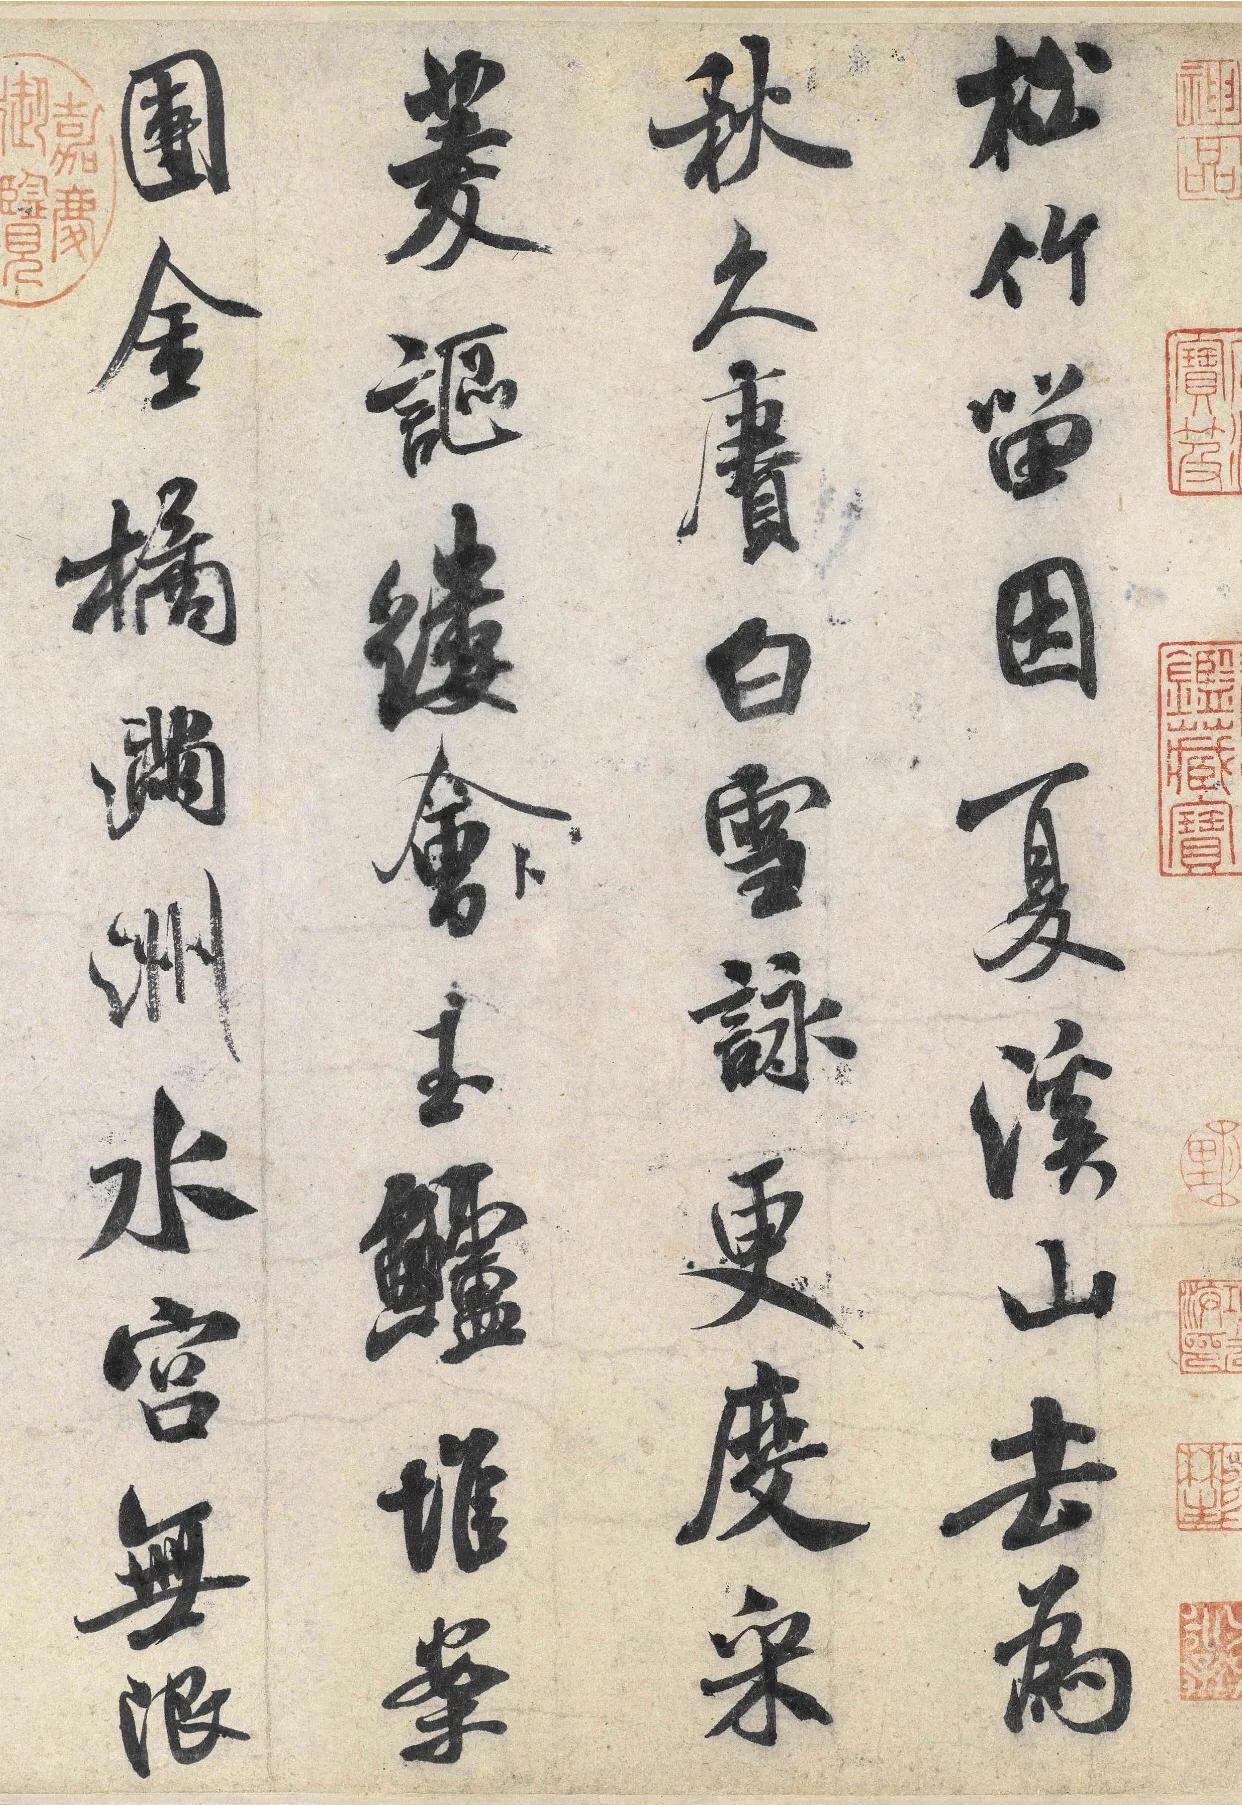 神品
寶笈
鑑藏寶
松竹留因夏溪山去為
秋久賡白雪詠更度采
菱謳縷會玉鱸堆案
團金橘滿洲水宮無限
嘉慶
御覽